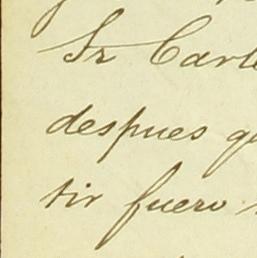 Sr Carl
despues q
tir fuero